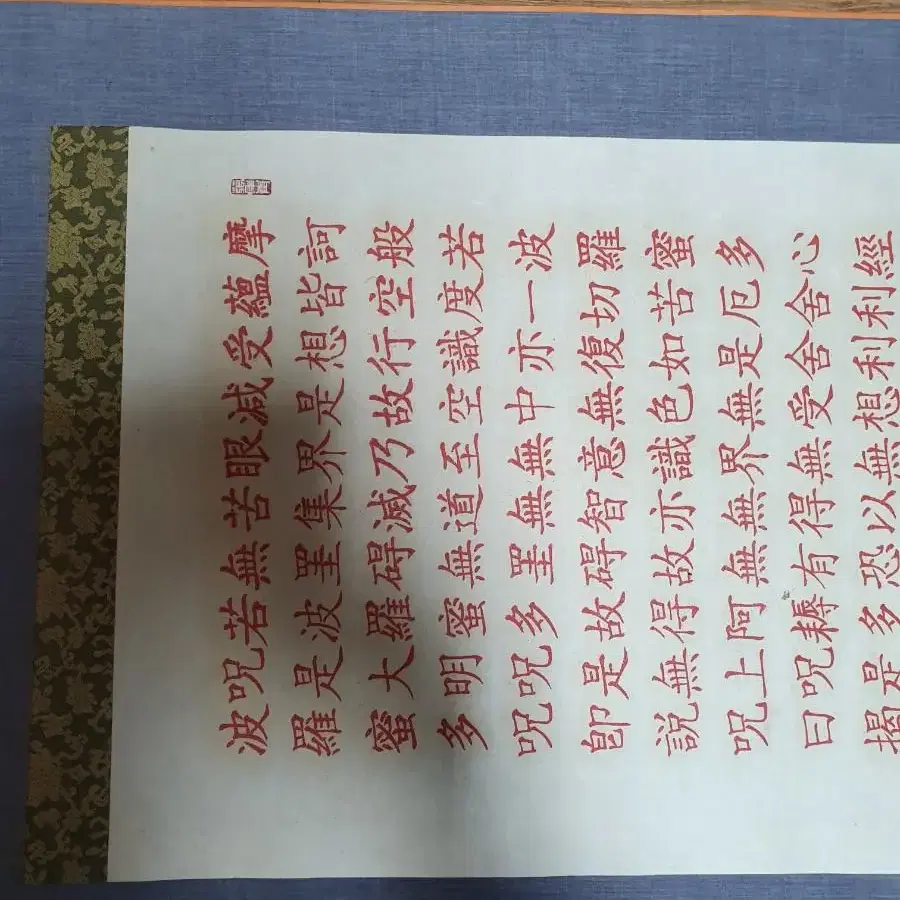 摩訶般若波羅蜜多心經
蘊皆空度一切苦厄舍利
受想行識亦復如是舍利
减是故空中無色無受想
眼界乃至無意識界無無
苦集滅道無智亦無得以
無罣碍無罣碍故無有恐
若波羅蜜多故得阿耨多
呪是大明呪是無上呪是
波羅蜜多呪卽說呪曰揭